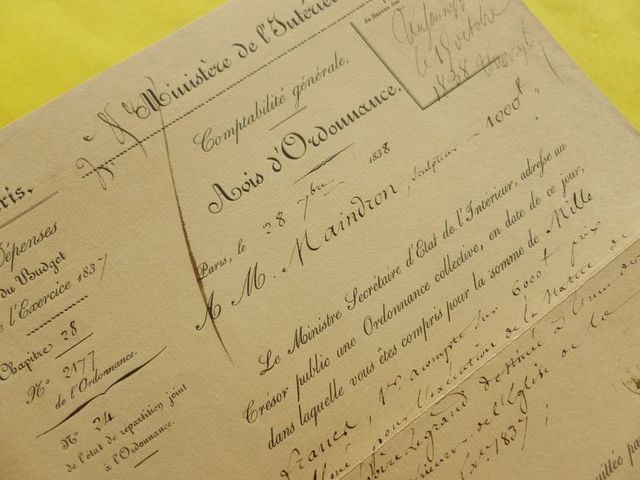 Ministère de l'Intérieur
Comptabilité générale.
Avis d'Ordonnance.
le 19 octobre
1838
Paris, le 28 7bre 1838
A M. Maindron, sculpteur - 1000f
Le Ministre Secrétaire d'Etat de l'Intérieur, adresse au
Trésor public une Ordonnance collective, en date de ce jour,
dans laquelle vous êtes compris pour la somme de Mille
francs, 1er acompte sur 6000f prix
pour l'exécution de la Statue de
Grégoire le grand destinée
de l'Eglise de la
1837;
ris.
Dépenses
du Budget
de l'Exercice 1837
Chapitre 28
N° 2177
de l'Ordonnance.
N° 24
de l'état de répartition joint
à l'Ordonnance.